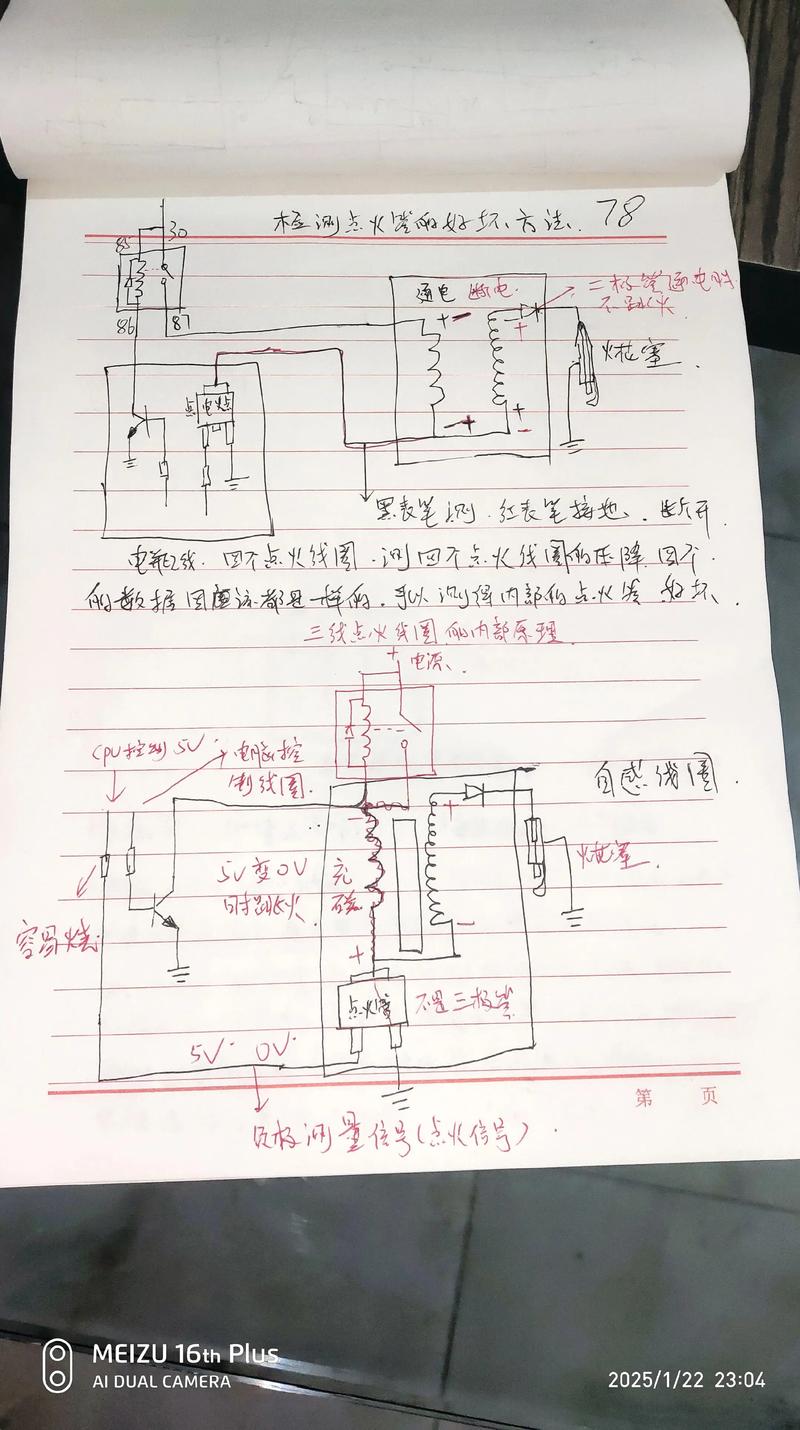 检测点火器的好坏方法. 78
85 30
86 87
通电 断电.
+ -
+
二极管通电时
不跳火
火花塞.
点火
+
+
-
黑表笔测. 红表笔接地. 断开.
线. 四个点火线圈. 测四个点火线圈的压降. 四个.
的数据因应该都是一样的. 可以测得内部的点火器 好坏.
三线点火线圈的内部原理
+ 电源.
CPU控制5V.
电脑控
制线圈.
自感线圈.
+
5V变0V
时跳火.
充
磁
火花塞.
容易烧
-
+
点火器
不是三极管
5V. 0V.
第 页
极测量信号(点火信号).
MEIZU 16th Plus
AI DUAL CAMERA
2025/1/22 23:04